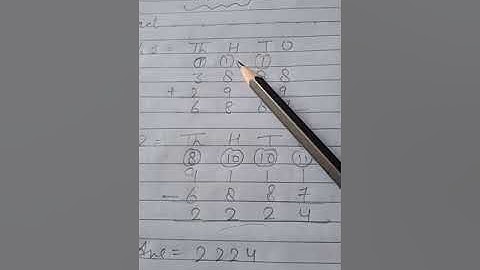 Th H T O
① ① ①
3 8 8
+ 2 9 9
6 8
Th H T
⑧ ⑩ ⑩ ⑪
9 1 1 1
- 6 8 8 7
2 2 2 4
Ans = 2224